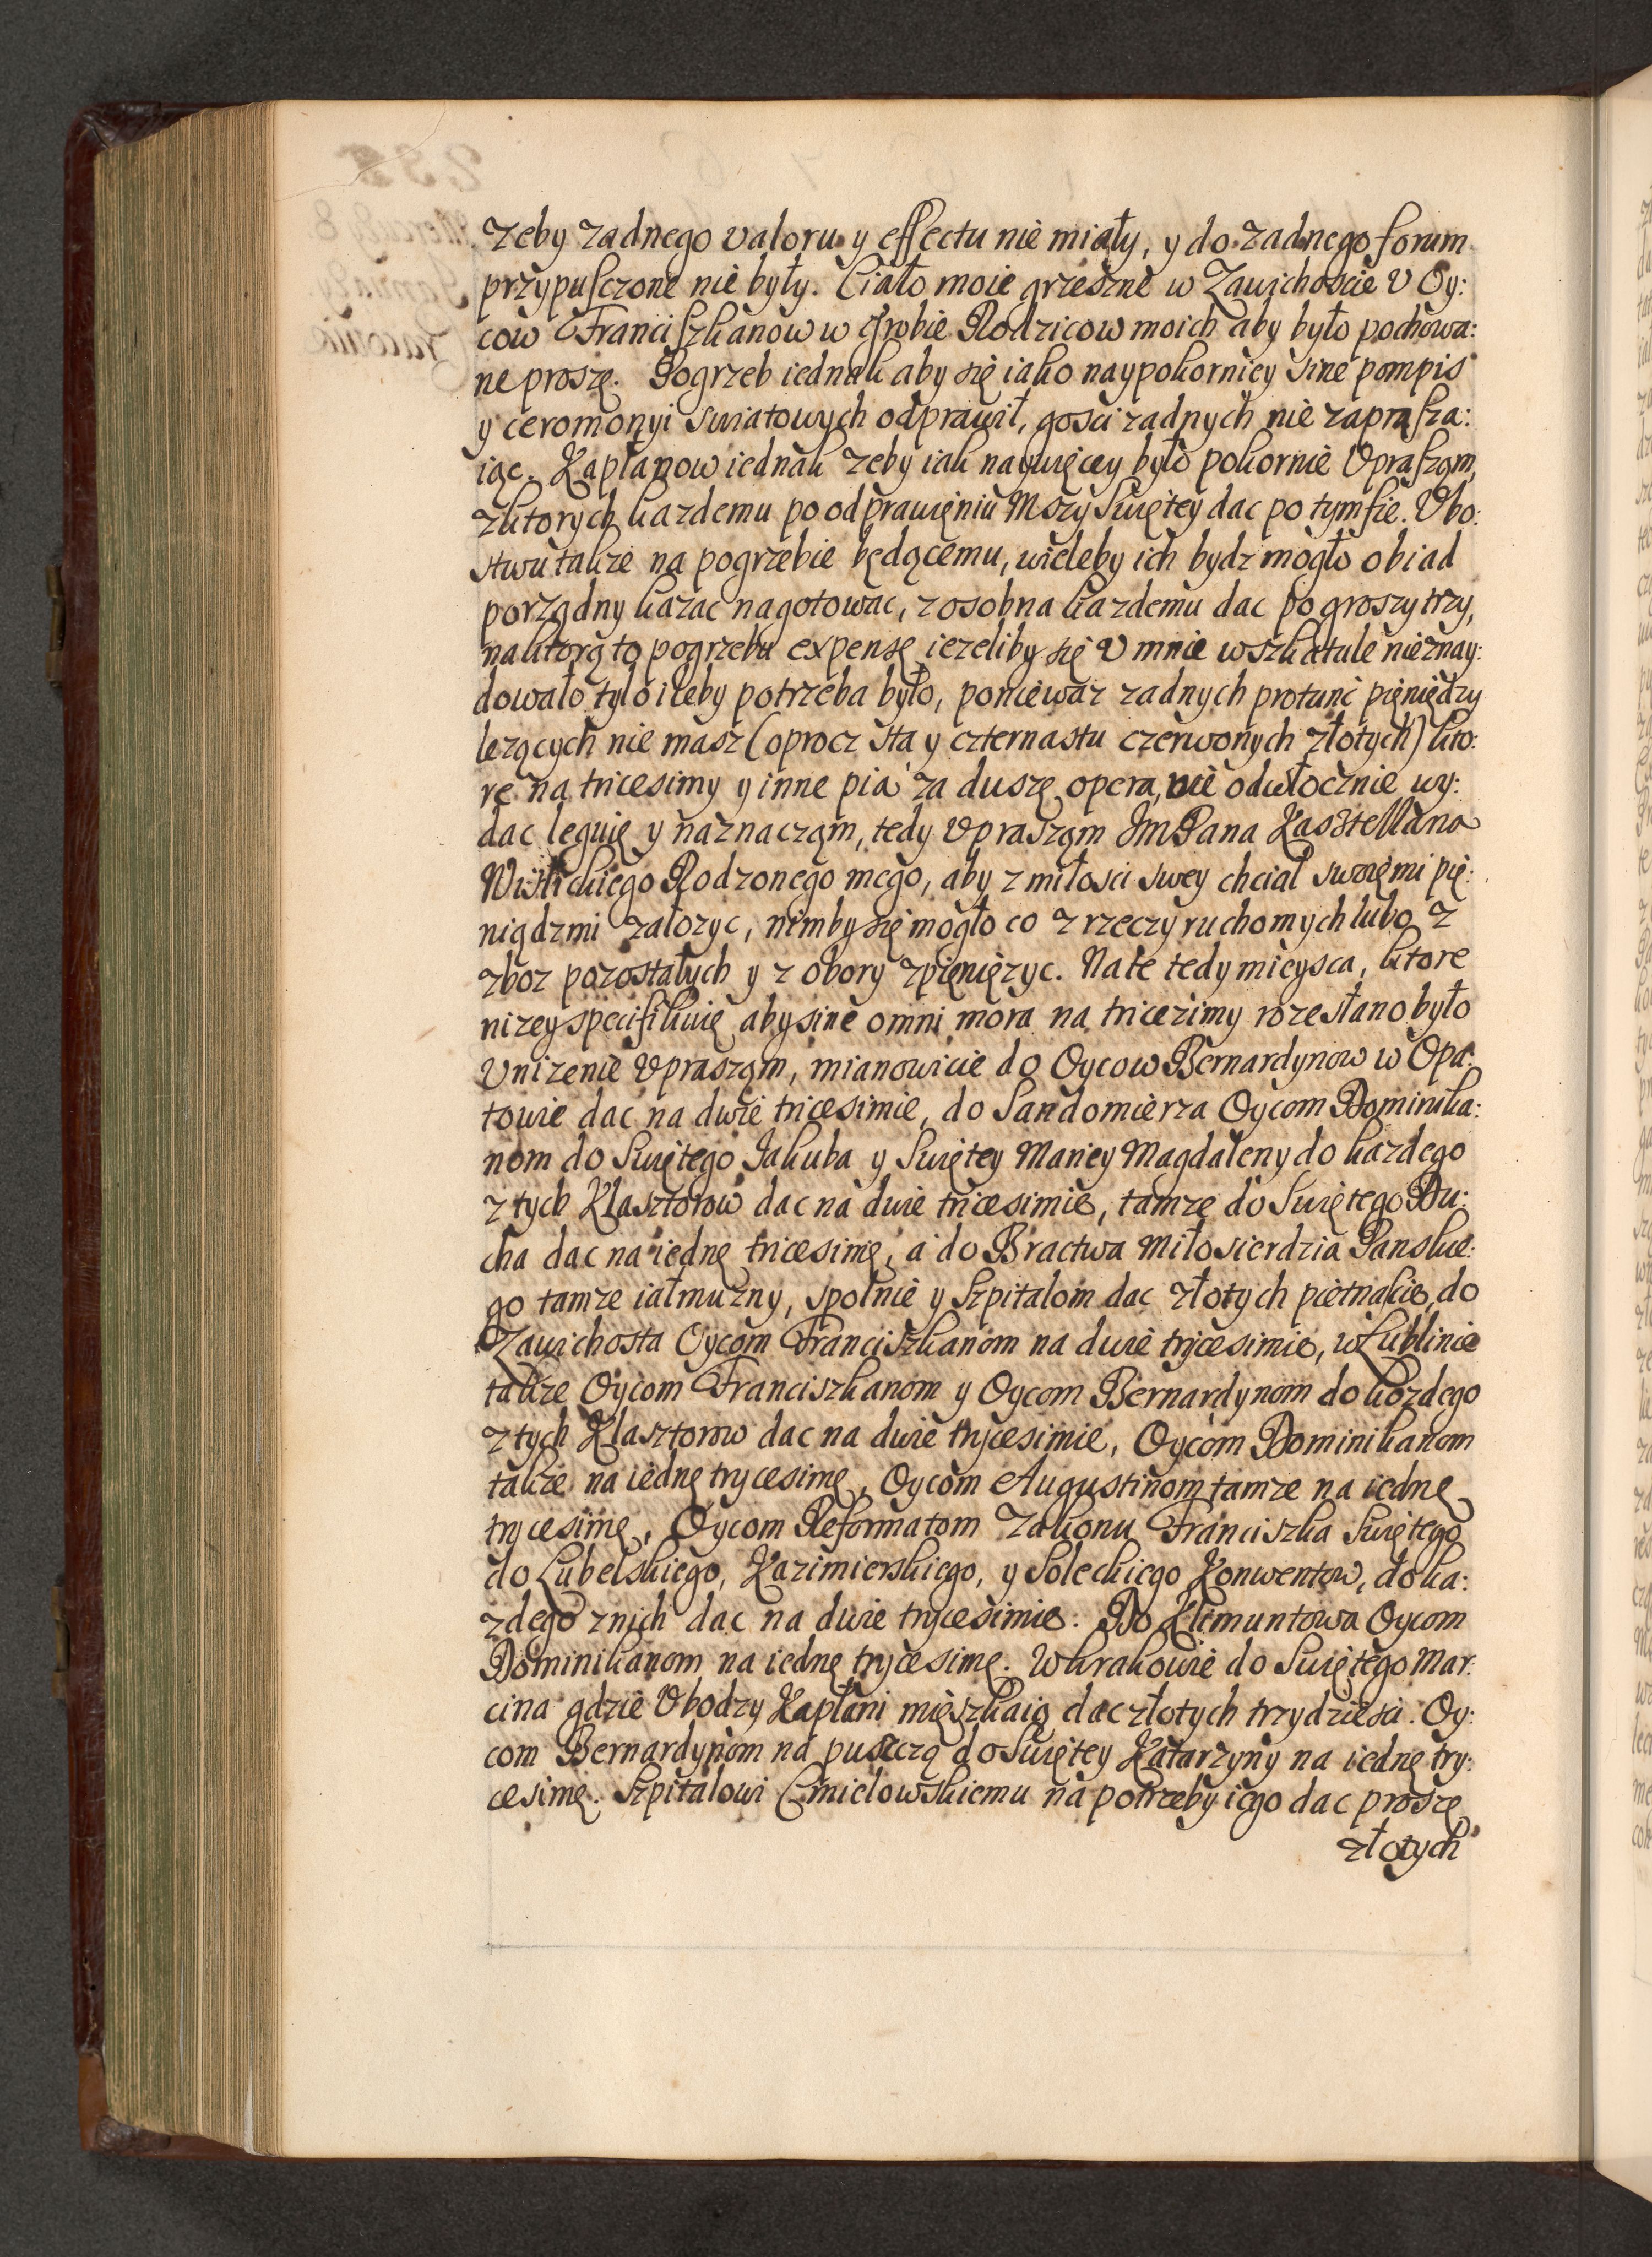 zeby zadnego valoru y effectu nie miały, y do zadnego forum
przypusczone nie były. Ciało moie grzeszne w Zawichoscie V Oy:
cow Franciszkanow w grobie Rodzicow moich aby było pochowa:
ne proszę. Pogrzeb iednak aby się iako naypokorniey sine pompis
y ceromonyi swiatowych odprawił, gosci zadnych nie zaprasza:
iąc. Kapłanow iednak zeby iak naywięcey było pokornie Vpraszam,
z ktorych kazdemu po odprawięniu Mszy Swiętey dac po tymfie. Vbo:
stwu takze na pogrzebie będącemu, wieleby ich bydz mogło obiad
porządny kazac nagotowac, z osobna kazdemu dac po groszy trzy,
na ktorą to pogrzebu expensę iezeliby się V mnie w szkatule nieznay:
dowało tylo ileby potrzeba było, poniewaz zadnych protunc pięniędzy
lezących nie masz (oprocz sta y czternastu czerwonych złotych) kto:
re na tricesimy y inne pia za duszę opera, nie odwłocznie wy:
dac leguię y naznaczam, tedy Vpraszam JmPana Kasztellana
Wislickiego Rodzonego mego, aby z miłosci swey chciał swoięmi pię:
niądzmi załozyc, nimby się mogło co z rzeczy ruchomych lubo z
zboz pozostałych y z obory zpięnięzyc. Na te tedy mieysca, ktore
nizey specifikuię aby sine omni mora na tricezimy rozesłano było
Vnizenie Vpraszam, mianowicie do Oycow Bernardynow w Opa:
towie dac na dwie tricesimie, do Sandomierza Oycom Dominika:
nom do Swiętego Jakuba y Swiętey Maryey Magdaleny do kazdego
z tych Klasztorow dac na dwie tricesimie, tamze do Swiętego Du:
cha dac na iednę tricesimę, a do Bractwa Miłosierdzia Panskie:
go tamze iałmuzny, społnie y Szpitalom dac złotych pietnascie, do
Zawichosta Oycom Franciszkanom na dwie trycesimie, w Lublinie
takze Oycom Franciszkanom y Oycom Bernardynom do kozdego
z tych Klasztorow dac na dwie trycesimie, Oycom Dominikanom
takze na iednę trycesimę, Oycom Augustinom tamze na iednę
trycesimę, Oycom Reformatom Zakonu Franciszka Swiętego
do Lubelskiego, Kazimierskiego, y Soleckiego Konwentow, do ka:
zdego z nich dac na dwie trycesimie: Do Klimuntowa Oycom
Dominikanom na iednę trycesimę. W Krakowie do Swiętego Mar:
cina gdzie Vbodzy Kapłani mięszkaią dac złotych trzydziesci. Oy:
com Bernardynom na puszczą do Swiętey Katarzyny na iednę try:
cesimę. Szpitalowi Cmielowskiemu na potrzeby iego dac proszę
złotych